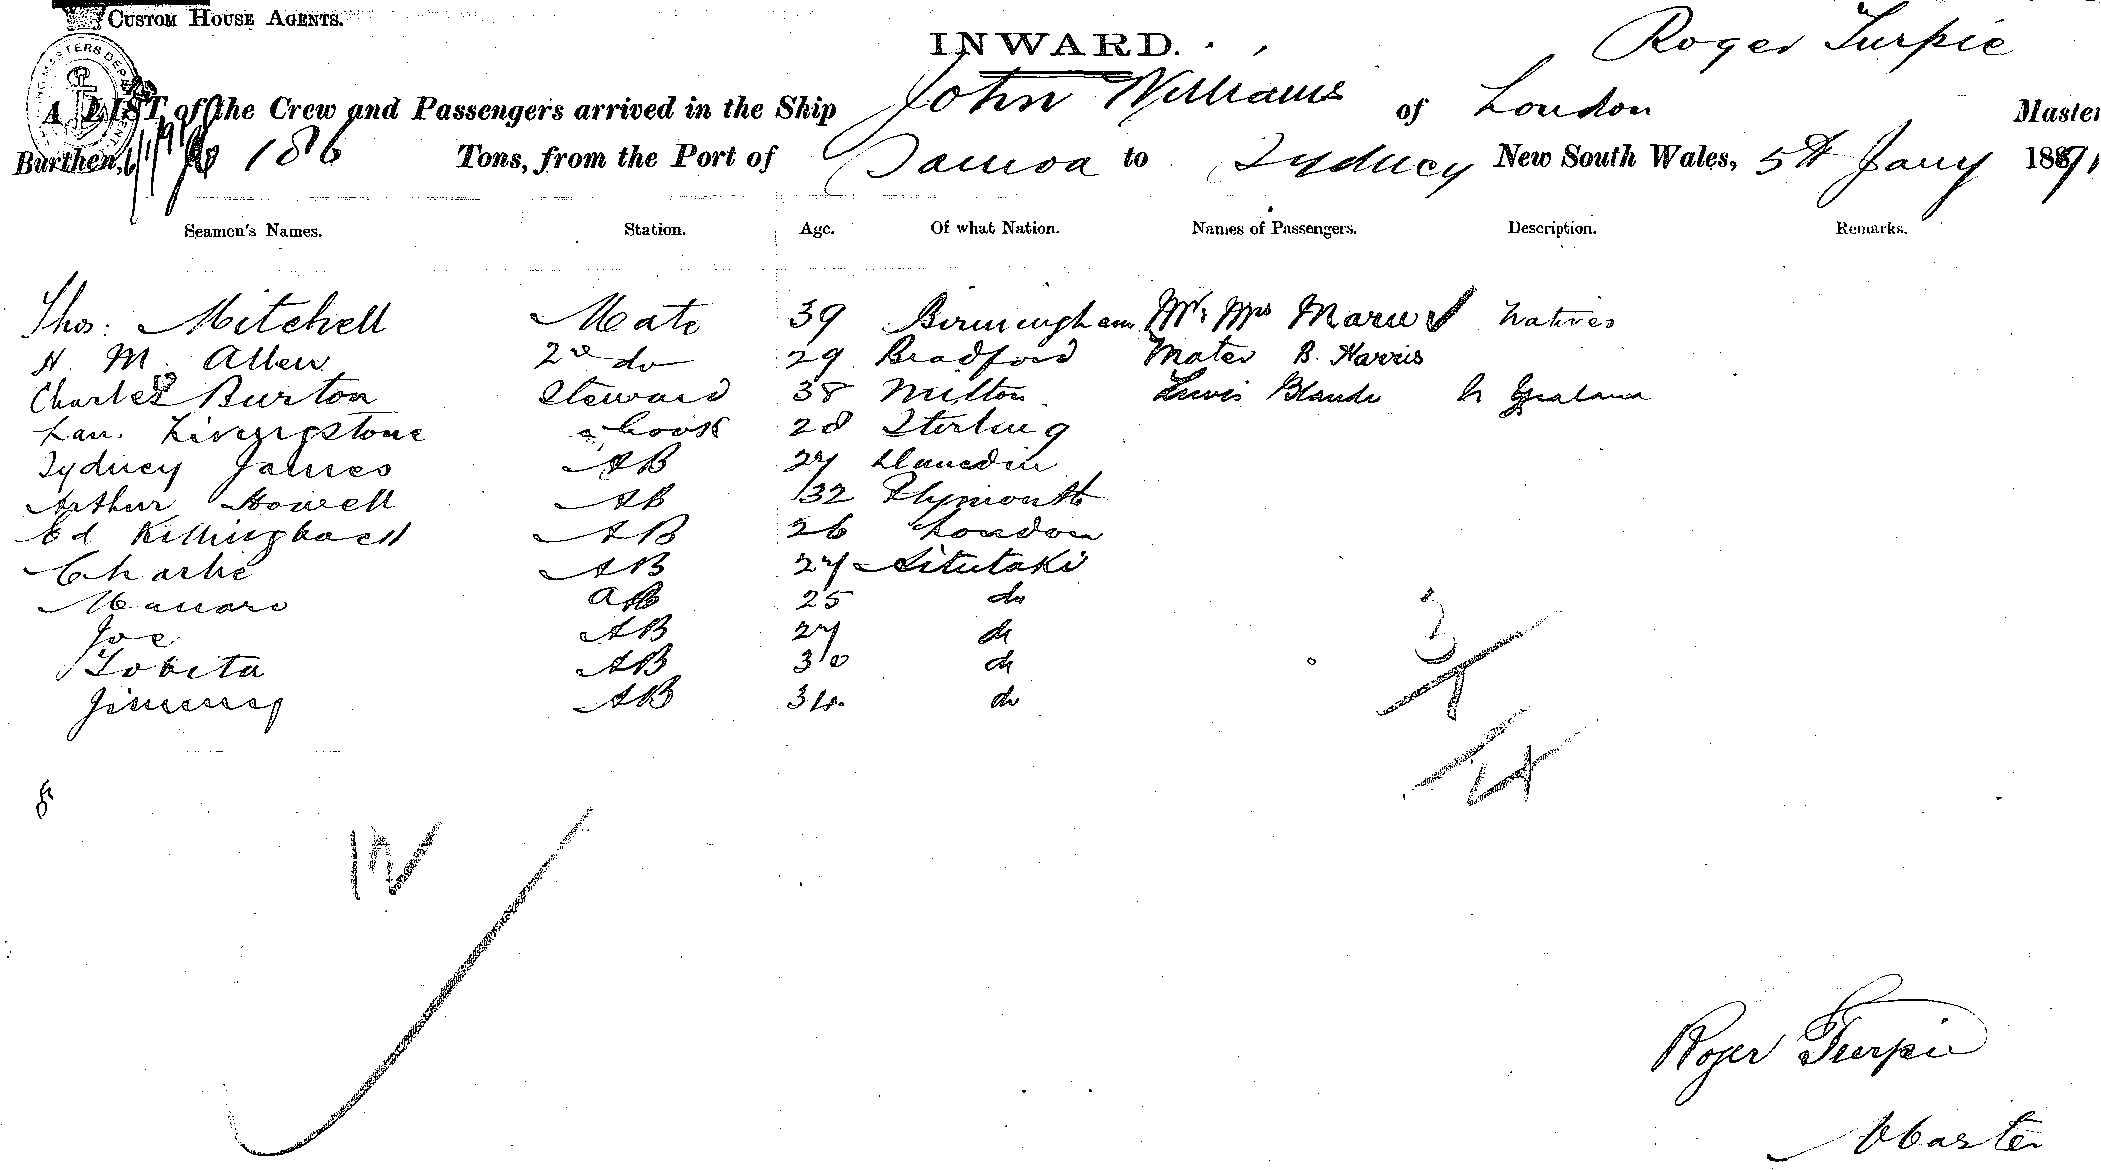 CUSTOM HOUSE AGENTS.
INWARD.
Roger Turpie
A LIST of the Crew and Passengers arrived in the Ship John Williams of London Master
Burthen, 186 Tons, from the Port of Samoa to Sydney New South Wales, 5th Jany 1891
Seamen's Names. Station. Age. Of what Nation. Names of Passengers. Description. Remarks.
Thos: Mitchell Mate 39 Birmingham Mr Mrs Natives
H. M. Allen 2nd do 29 Bradford B. Harris
Charles Burton Steward 38 Milton Lewis
Lau. Livingstone Cook 28 Sterling
Sydney James AB 27 Dunedin
Arthur Howell AB 32 Plymouth
Ed Killingback AB 26 London
Charlie AB 27 Aitutaki
AB 25 do
Joe AB 27 do
AB 30 do
Jimmy AB 34 do
12
3
1
4
Roger Turpie
Master